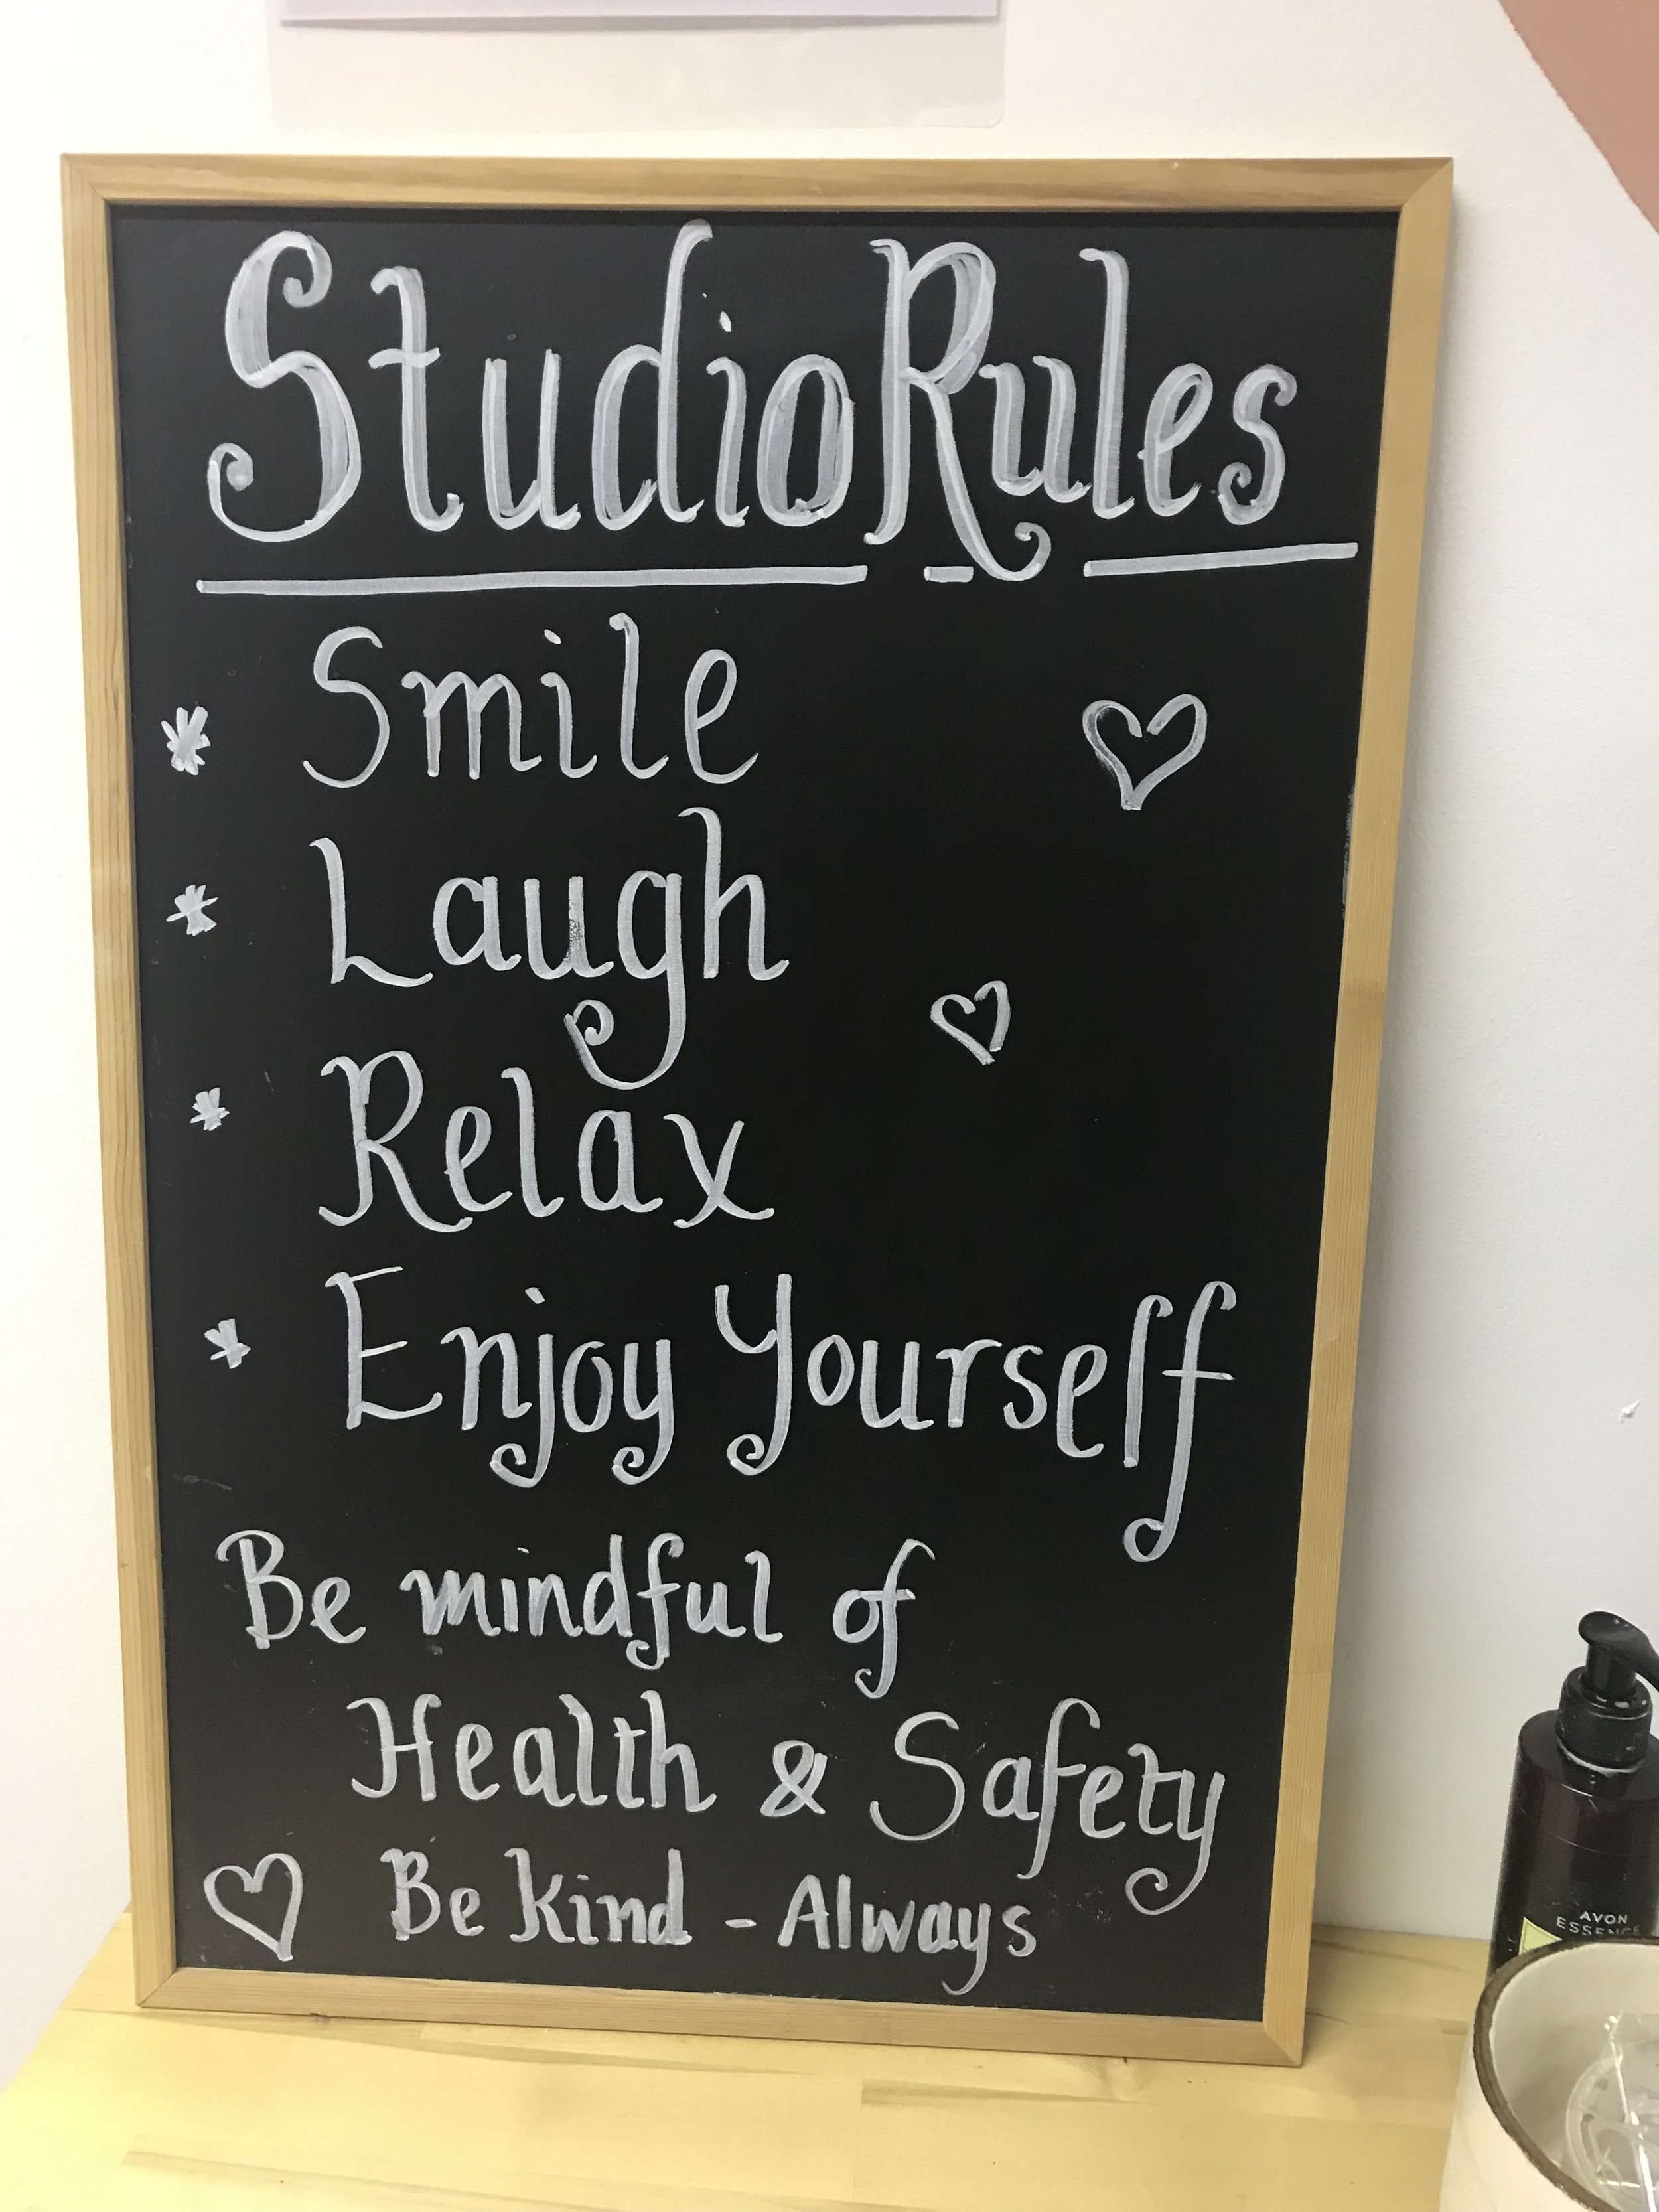 Studio Rules
* Smile
* Laugh
* Relax
* Enjoy Yourself
Be mindful of
Health & Safety
Be Kind - Always
AVON
ESSENCE